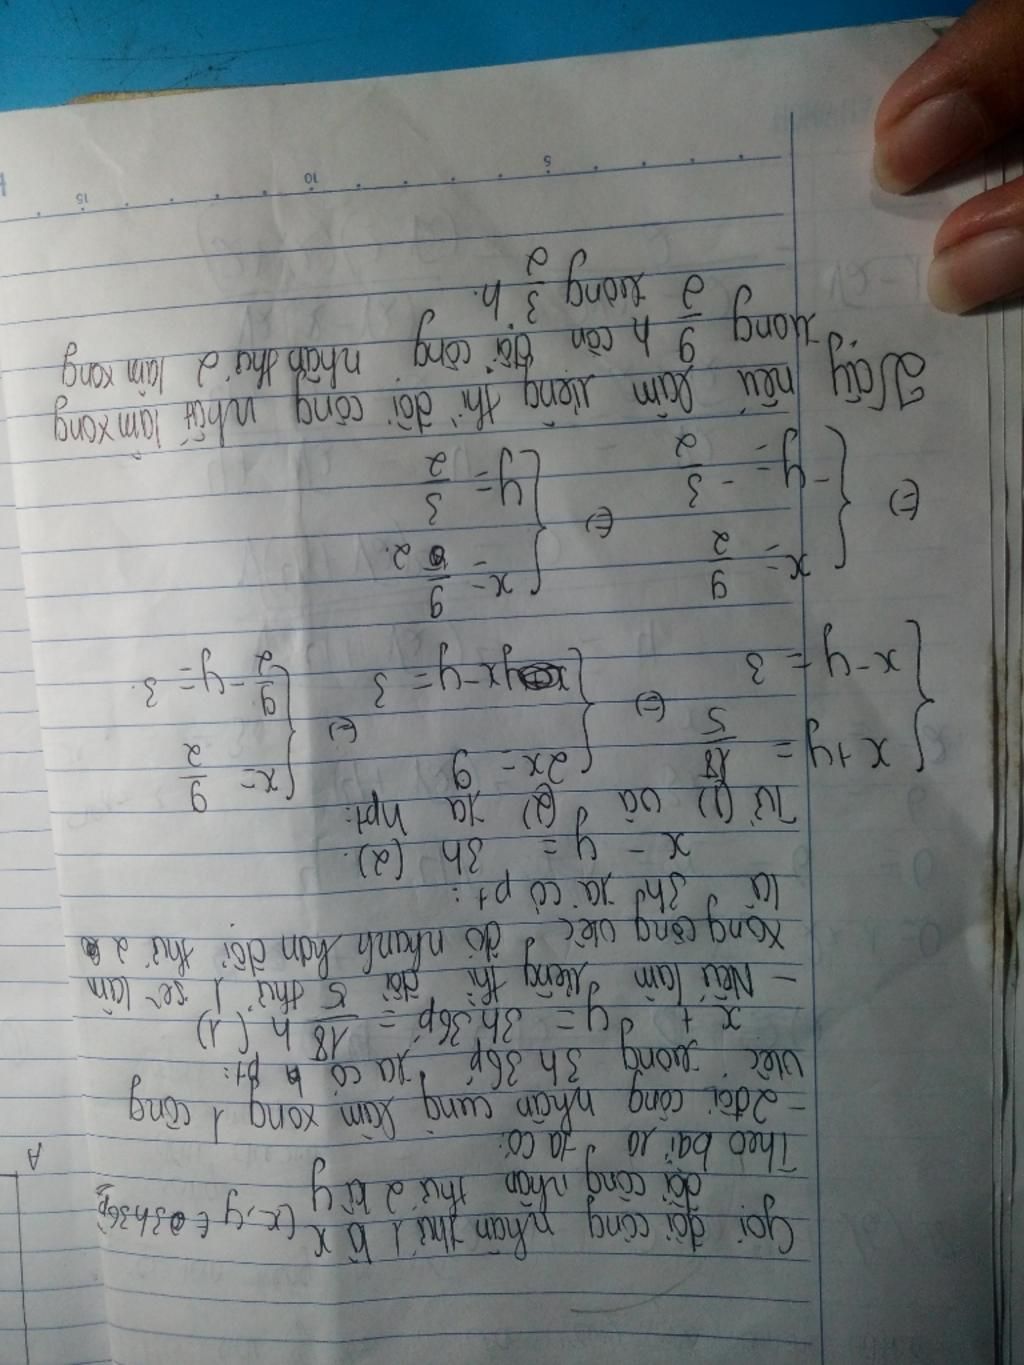 Gọi đội công nhân thứ 1 là x (x, y ∈ 3h36p)
đội công nhân thứ 2 là y
Theo bài ra ta có:
- 2 đội công nhân cùng làm xong 1 công
việc trong 3h 36p ta có pt:
x + y = 3h 36p = 18/5 h (1)
- Nếu làm riêng thì đội thứ 1 sẽ làm
xong công việc đó nhanh hơn đội thứ 2
là 3h ta có pt:
x - y = 3h (2).
Từ (1) và (2) ta hpt:
{ x + y = 18/5 { 2x = 9 { x = 9/2
x - y = 3 (=) x - y = 3 (=) 9/2 - y = 3.
(=) { x = 9/2 (=) { x = 9/2.
- y = - 3/2 y = 3/2
Vậy nếu làm riêng thì đội công nhất làm xong
trong 9/2 h còn đội công nhân thứ 2 làm xong
trong 3/2 h.
5 10 15
A